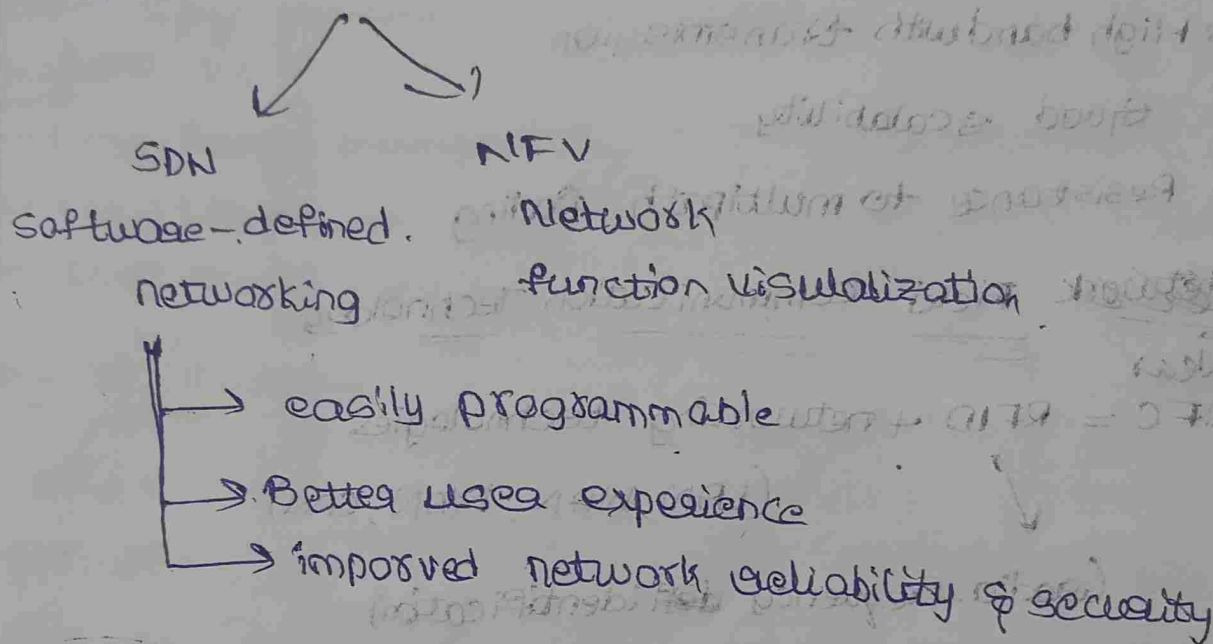 SDN NFV
software-defined. Network
networking function visulalization
easily programmable
Better user experience
imporved network reliability & security